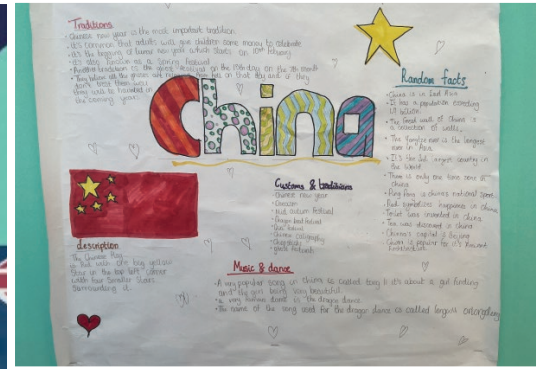 Traditions
- Chinese new year is the most important tradition
- It's common that adults will give children some money to celebrate
- It's the begging of lunar new year which starts on 10th February
- It's also known as a spring festival
- Another tradition is the ghost festival on the 15th day on the 7th month
- They believe all the ghosts will
the coming year.
China
Random facts
- China is in East Asia
- It has a population exceeding
1.4 billion
- The Great wall of China is
a collection of walls.
- The Yangtze river is the longest
river in Asia
- It's the 3rd largest country in
the world
- There is only one time zone in
China
- Ping Pong is China's national sport
- Red symbolises happiness in China
- Toilet was invented in China
- Tea was discovered in China
- China's capital is Beijing
- China is popular for it's
Customs & traditions
- Chinese new year
- mid autumn festival
- Dragon boat festival
- Chinese calligraphy
- Chopsticks
description
The Chinese flag
is Red with one big yellow
star in the top left corner
with four smaller stars
surrounding it.
Music & dance
- A very popular song in China is called
and the girl being very beautiful
dance is the dragon dance.
- The name of the song used for the dragon dance is called